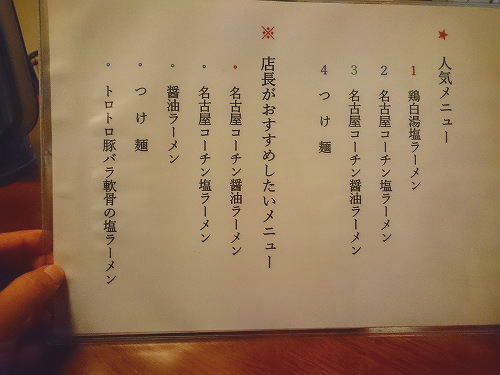 ★ 人気メニュー
1 鶏白湯塩ラーメン
2 名古屋コーチン塩ラーメン
3 名古屋コーチン醤油ラーメン
4 つけ麺
※ 店長がおすすめしたいメニュー
• 名古屋コーチン醤油ラーメン
• 名古屋コーチン塩ラーメン
• 醤油ラーメン
• つけ麺
• トロトロ豚バラ軟骨の塩ラーメン